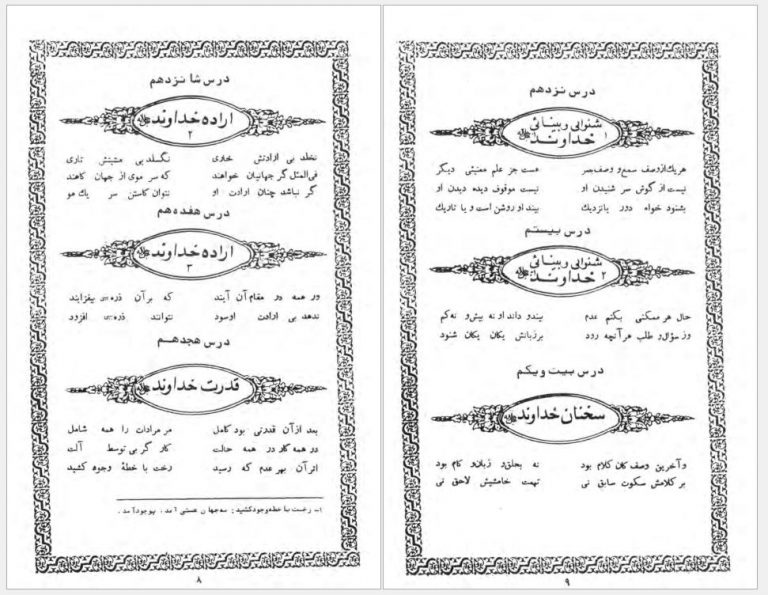 درس شا نزدهم
اراده خداوند
۲
نخلد بی ارادتش خاری نگسلد بی مشیتش تاری
فی‌المثل گر جهانیان خواهند که سر موی از جهان کاهند
گر نباشد چنان ارادت او نتوان کاستن سر یك مو
درس هفده هم
اراده خداوند
۳
ور همه در مقام آن آیند که بر آن ذره‌یی بیفزایند
ندهد بی ارادت اوسود نتوانند ذره‌یی افزود
درس هجدهم
قدرت خداوند
بعد ازآن قدرتی بود کامل مر مرادات را همه شامل
در همه کار در همه حالت کار گر بی توسط آلت
اثر آن بهر عدم که رسید رخت با خطۀ وجود کشید
۱ـ رخت با خطه وجود کشید: به جهان هستی آمد، بوجود آمد.
۸
درس نزدهم
شنوائی و بینائی
۱ خداوند
هر یك از وصف سمع و وصف بصر هست جز علم معنیش دیگر
نیست از گوش سر شنیدن او نیست موقوف دیده دیدن او
بشنود خواه دور یا نزدیك بیند او روشن است و یا تاریك
درس بیستم
شنوائی و بینائی
۲ خداوند
حال هر ممکنی بکتم عدم بیند و داند او نه بیش و نه کم
وز سؤال و طلب هر آنچه رود بر زبانش یکان یکان شنود
درس بیست و یکم
سخنان خداوند
و آخرین وصف کان کلام بود نه بحلق و زبان و کام بود
بر کلامش سکوت سابق نی تهمت خامشیش لاحق نی
۹